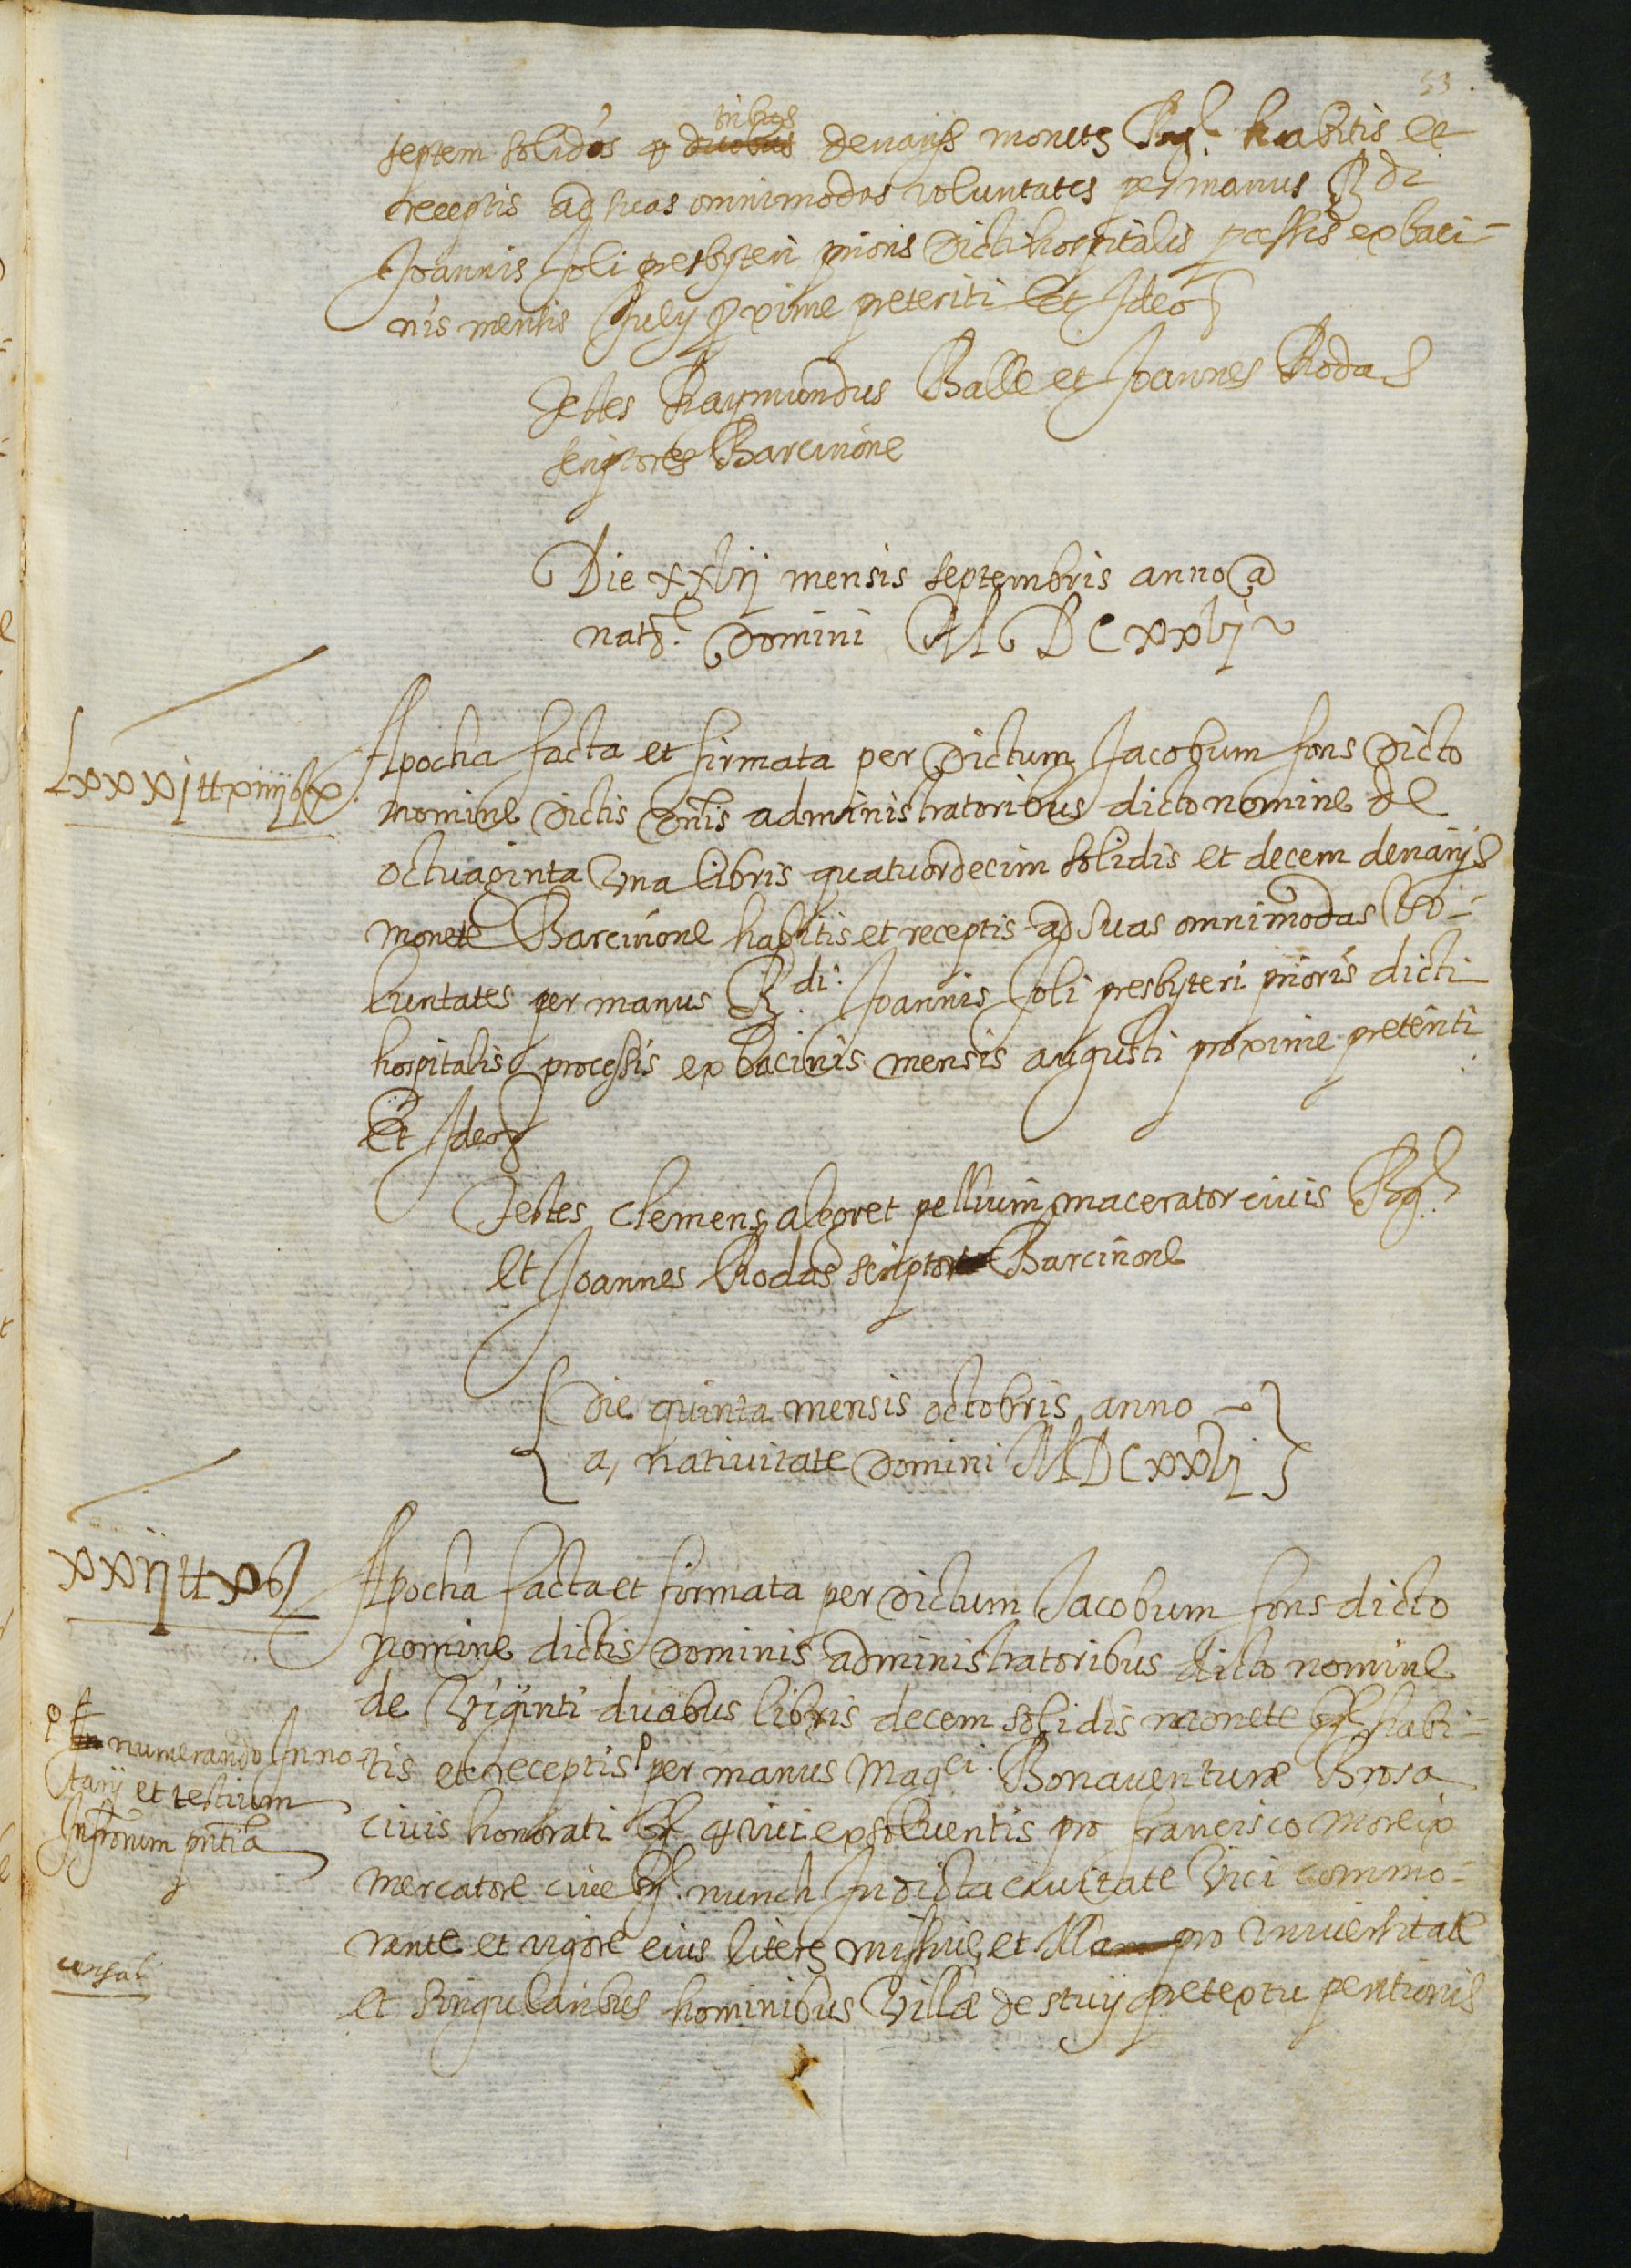 53.
septem solidos et duobus tribus denarijs monete Barª. habitis et
receptis ad suas omnimodas voluntates per manus R.di
Joannis Joli presbyteri prioris dicti hospitalis processis ex baci-
nis mensis July proxime preteriti Et Ideo
Testes Raymundus Balle et Joannes Rodas
scriptores Barcinone
Die xxvij mensis septembris anno a
nat.e Domini MDCxxvj
Lxxxj ll xiiij s x
Apocha facta et firmata per dictum Jacobum fons dicto
nomine dictis dnis administratoribus dicto nomine de
octuaginta vna libris quatuordecim solidis et decem denarijs
monete Barcinone habitis et receptis ad suas omnimodas vo-
luntates per manus R.di Joannis Joli presbyteri prioris dicti
hospitalis processis ex bacinis mensis augusti proxime preteriti
Et Ideo
Testes Clemens alegret pellium macerator ciuis Barª
et Joannes Rodas scriptor Barcinone
Die quinta mensis octobris anno
a, natiuitate Domini MDCxxvj
xxij ll x s
Apocha facta et firmata per dictum Jacobum fons dicto
nomine dictis dominis administratoribus dicto nomine
de viginti duabus libris decem solidis monete Barª habi-
tis et receptis per manus Mag.ci Bonauenturæ Brosa
numerando In no
tarij et testium
Infrorum pntia
ciuis honorati vici exsoluentis pro francisco moreix
mercatore ciue Barª nunch In dicta ciuitate Vici commo-
rante et vigore eius litere missiue et pro vniuersitate
censal
et singularibus hominibus Villæ de stuij pretextu pentionis